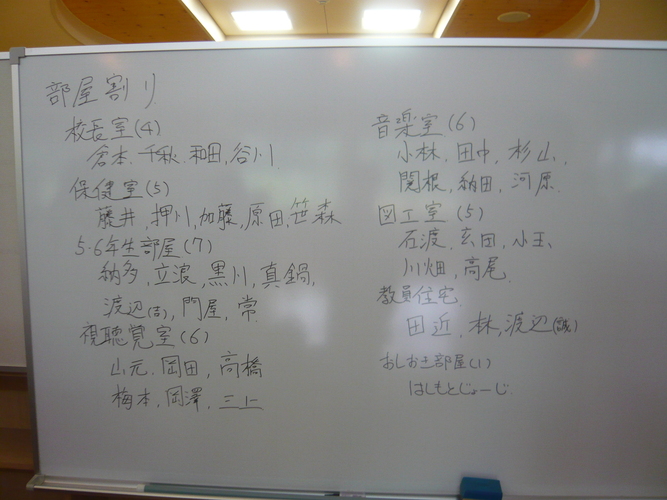 部屋割り
校長室(4)
倉本、千秋、和田、谷川
保健室(5)
藤井、押川、加藤、原田、笹森
5・6年生部屋(7)
納多、立浪、黒川、真鍋、
渡辺(吉)、門屋、常
視聴覚室(6)
山元、岡田、高橋
梅本、岡澤、三上
音楽室(6)
小林、田中、杉山、
関根、納田、河原
図工室(5)
石渡、玄田、小玉、
川畑、高尾
教員住宅
田近、林、渡辺(誠)
おしお土部屋(1)
はしもとじょーじ